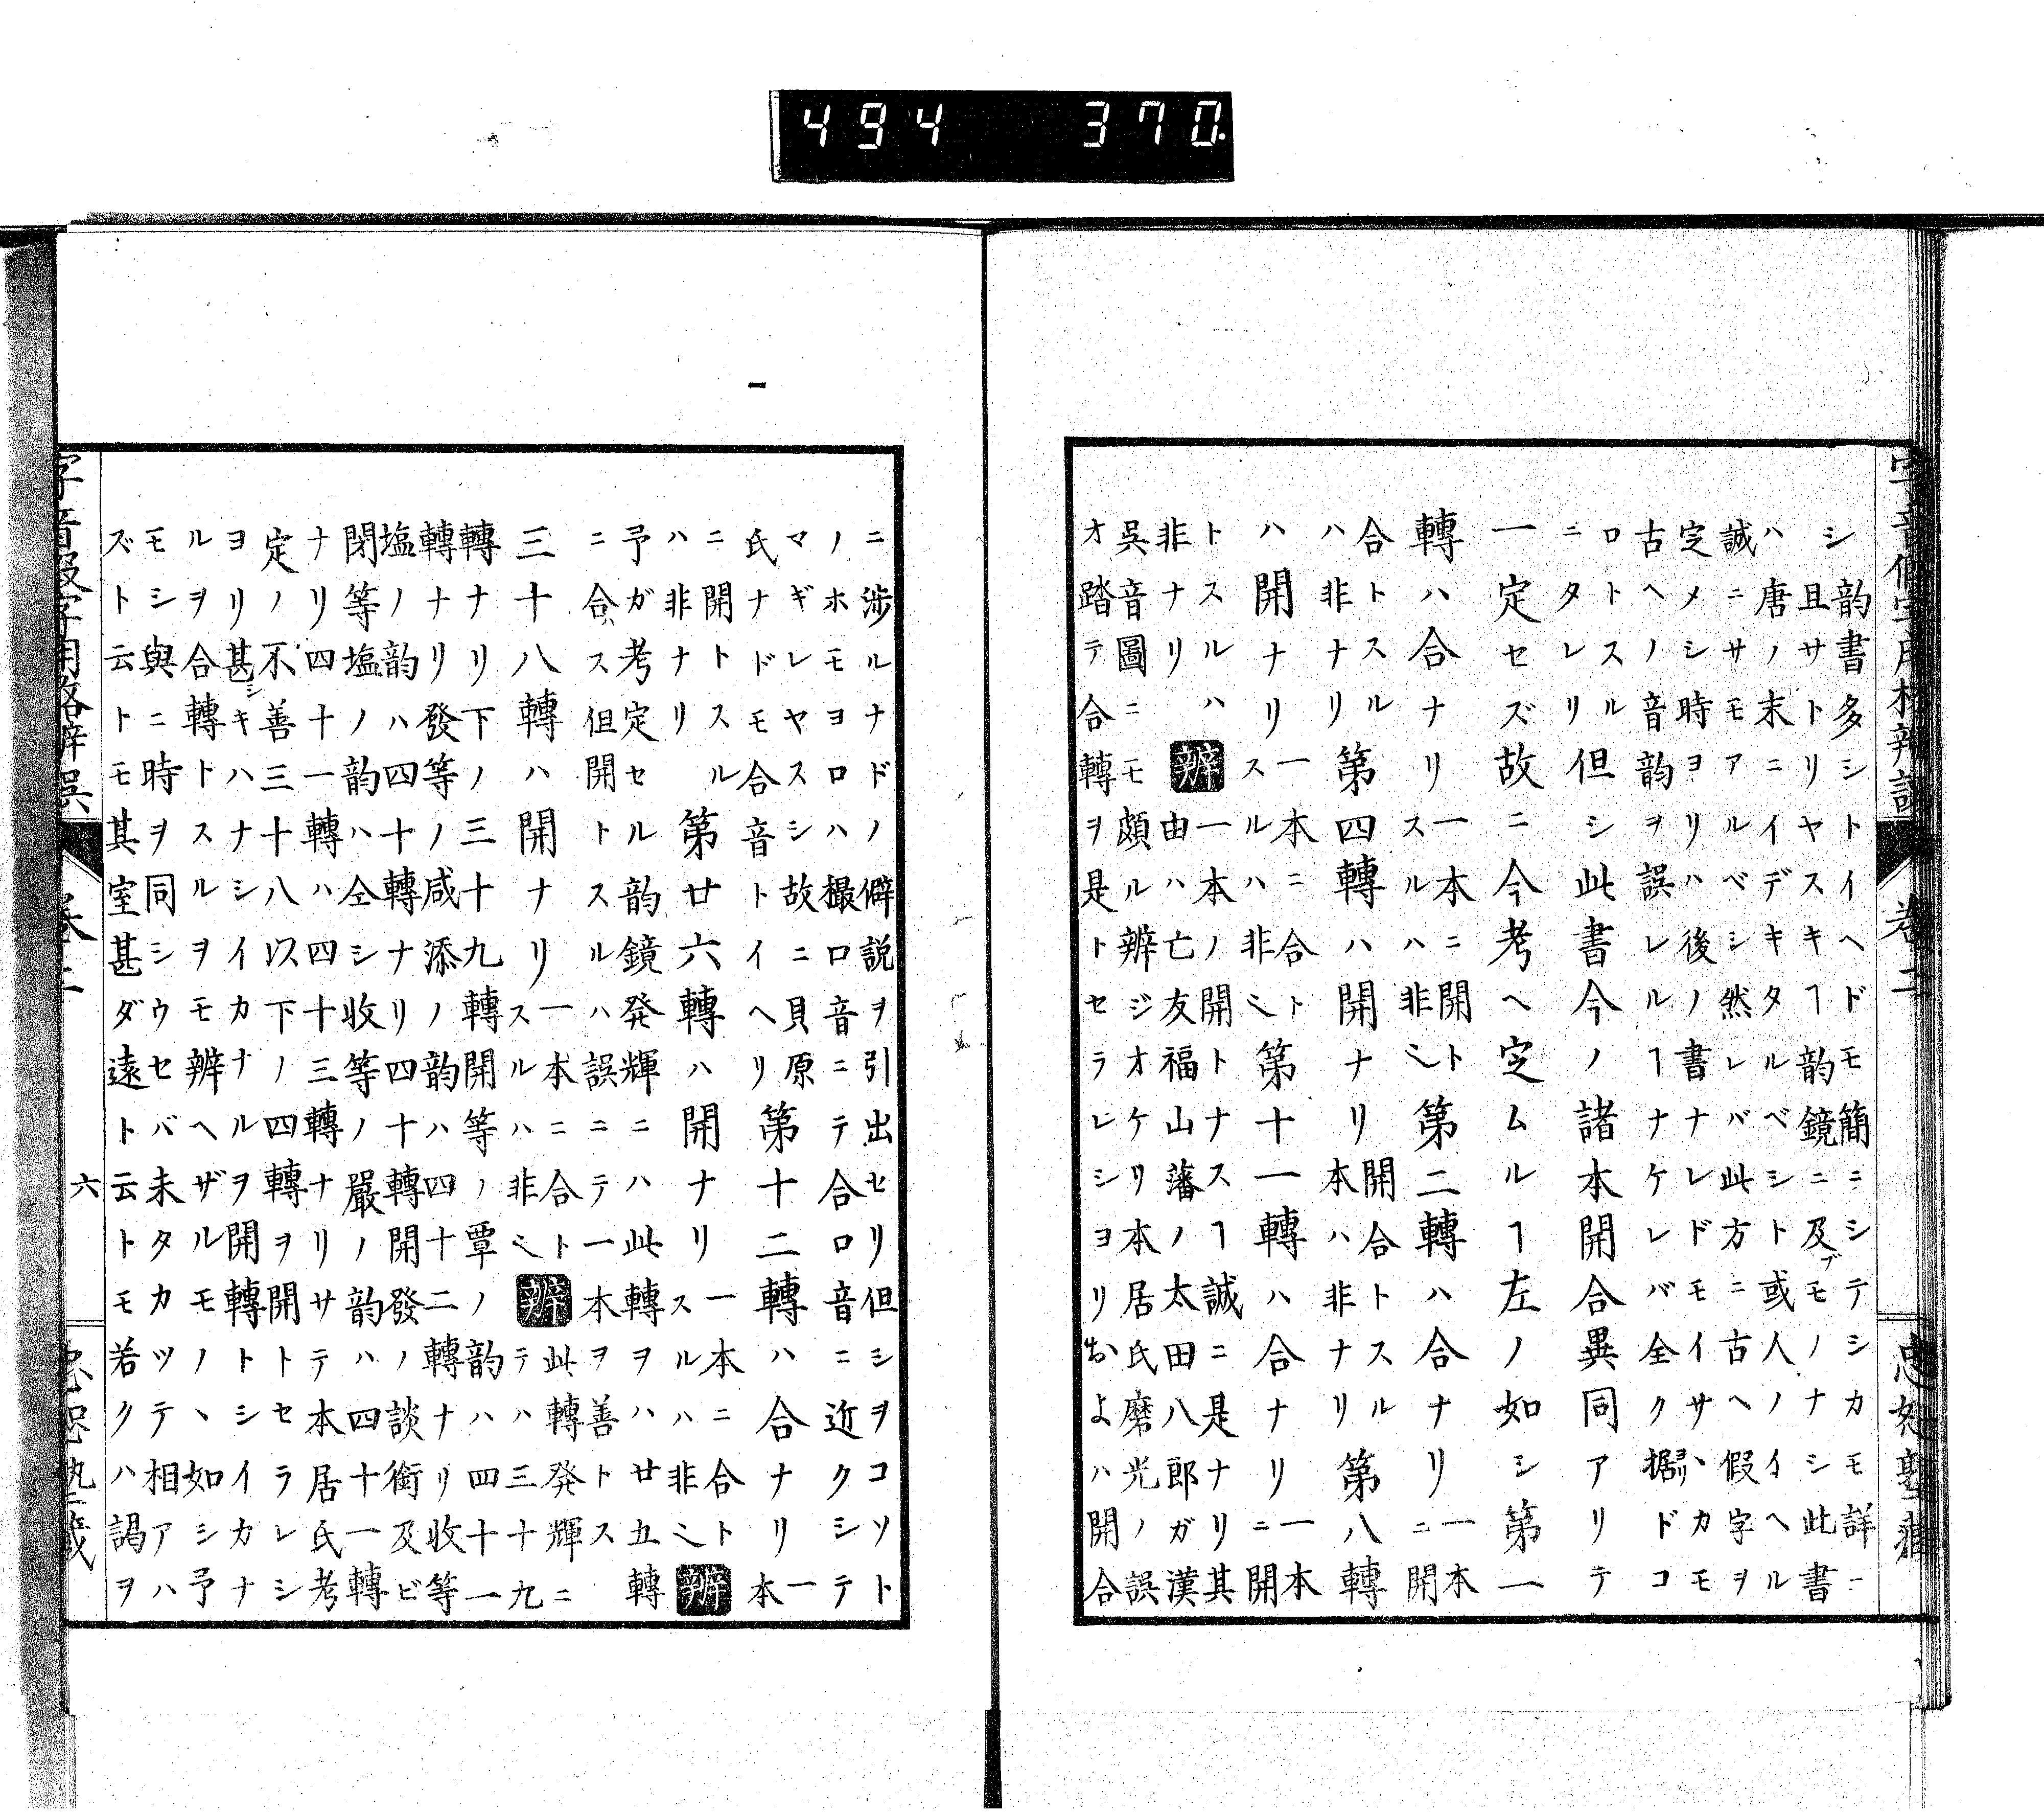 494 370.
韵書多シトイヘドモ簡ニシテシカモ詳ニ
シ且サトリヤスキヿ韵鏡ニ及ブモノナシ此書
ハ唐ノ末ニイデキタルベシト或人ノイヘル
誠ニサモアルベシ然レバ此方ニ古ヘ假字ヲ
定メシ時ヨリハ後ノ書ナレドモイサヽカモ
古ヘノ音韵ヲ誤レルヿナケレバ全ク據ドコ
ロトスル
ニタレリ但シ此書今ノ諸本開合異同アリテ
一定セズ故ニ今考ヘ定ムルヿ左ノ如シ第一
轉ハ合ナリ一本ニ開トスルハ非ミ第二轉ハ合ナリ一本ニ開
合トスルハ非ナリ第四轉ハ開ナリ本開合トスルハ非ナリ第八轉
ハ開ナリ一本ニ合トスルハ非ミ第十一轉ハ合ナリ一本ニ開
トスルハ
非ナリ辨一本ノ開トナスヿ誠ニ是ナリ其
由ハ亡友福山藩ノ太田八郎ガ漢
呉音圖ニモ頗ル辨ジオケリ本居氏磨光ノ誤
オ踏テ合轉ヲ是トセラレシヨリおよハ開合
ニ渉ルナドノ僻説ヲ引出セリ但シヲコソト
ノホモヨロハ撮口音ニテ合口音ニ近クシテ
マギレヤスシ故ニ貝原
氏ナドモ合音トイヘリ第十二轉ハ合ナリ一本
ニ開トスル
ハ非ナリ第廿六轉ハ開ナリ一本ニ合トスルハ非ミ辨
予ガ考定セル韵鏡発輝ニハ此轉ヲハ廿五轉
ニ合ス但開トスルハ誤ニテ一本ヲ善トス
三十八轉ハ開ナリ一本ニ合トスルハ非ミ辨此轉発輝ニテハ三十九
轉ナリ下ノ三十九轉開等ノ覃ノ韵ハ四十一
轉ナリ發等ノ咸添ノ韵ハ四十二轉ナリ收等
塩ノ韵ハ四十轉ナリ四十轉開發ノ談銜及ビ
閉等塩ノ韵ハ仝シ收等ノ嚴ノ韵ハ四十一轉
ナリ四十一轉ハ四十三轉ナリサテ本居氏考
定ノ不善三十八以下ノ四轉ヲ開トセラレシ
ヨリ甚シキハナシイカナルヲ開轉トシイカナ
ルヲ合轉トスルヲモ辨ヘザルモノヽ如シ予
モシ與ニ時ヲ同シウセバ未タカツテ相アハ
ズト云トモ其室甚ダ遠ト云トモ若クハ謁ヲ
六